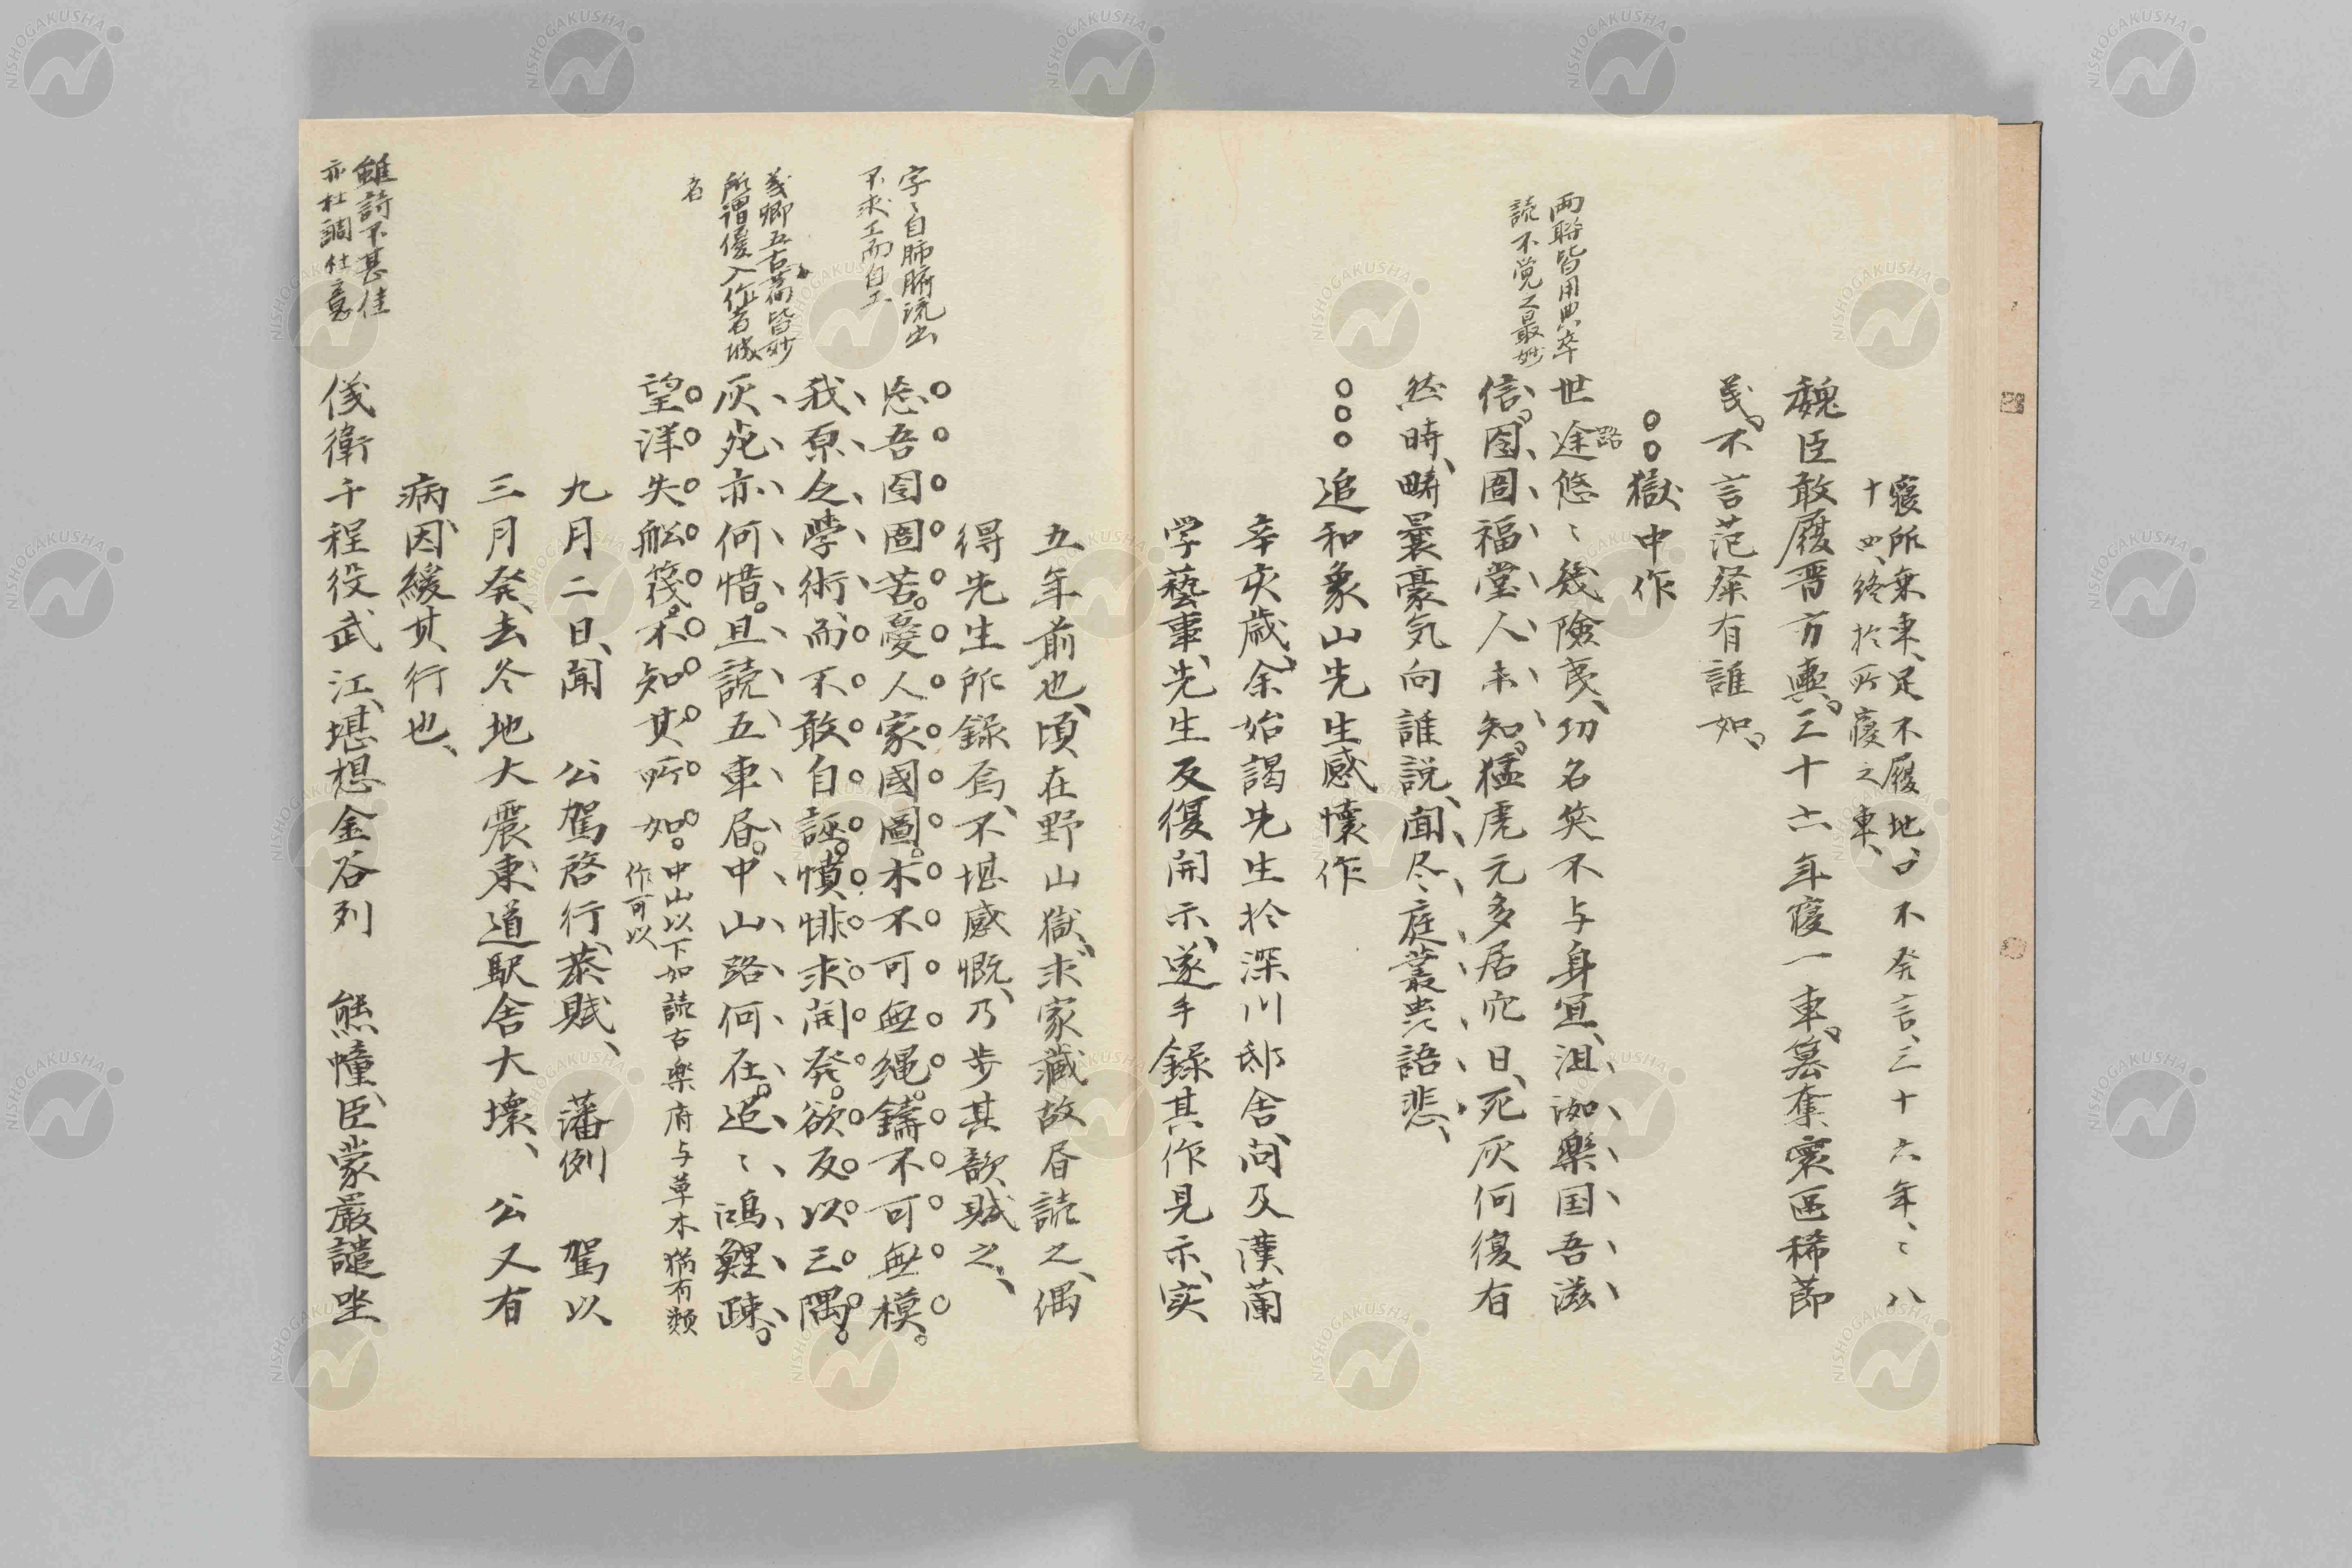 寢所乗車、足不履地、口不発言、三十六年、〻八
十四、終於所寢之車、
魏臣敢履晋方輿。三十六年寢一車。簒奪寰区稀節
義。不言范粲有誰如。
○○獄中作
世途悠〻幾険夷、功名奚不与身宜、沮洳楽国吾滋
路
信。囹圄福堂人未知。猛虎元多居穴日、死灰何復有
然時、疇曩豪気向誰説、聞尽庭叢虫語悲、
両聯皆用典卒
読不覚之最妙
○○○追和象山先生感懐作
辛亥歳、余始謁先生於深川邸舎、問及漢蘭
学藝事、先生反復開示、遂手録其作見示、実
五年前也、頃在野山獄、求家蔵故昏読之、偶
得先生所録焉、不堪感慨、乃歩其韻賦之、
字〻自肺腑流出
不求工而自工
忘吾囹圄苦。憂人家國圖。木不可無縄。鑄不可無模。
我原之學術、而不敢自誣。憤悱求開発。欲反以三隅。
義卿五古篇〻皆妙
所謂優入作者域
者
灰死亦何惜。且読五車昏。中山路何在。迢〻鴻鯉疎。
望洋失舩筏。不知其所如。中山以下如読古楽府与草木猶有類
作可以
九月二日、聞　公駕啓行、恭賦、　藩例　駕以
三月発、去冬地大震、東道駅舎大壊、　公又有
病、因緩其行也、
雖詩不甚佳
亦杜調杜意
儀衛千程役武江、堪想金谷列　熊幢、臣蒙厳譴坐